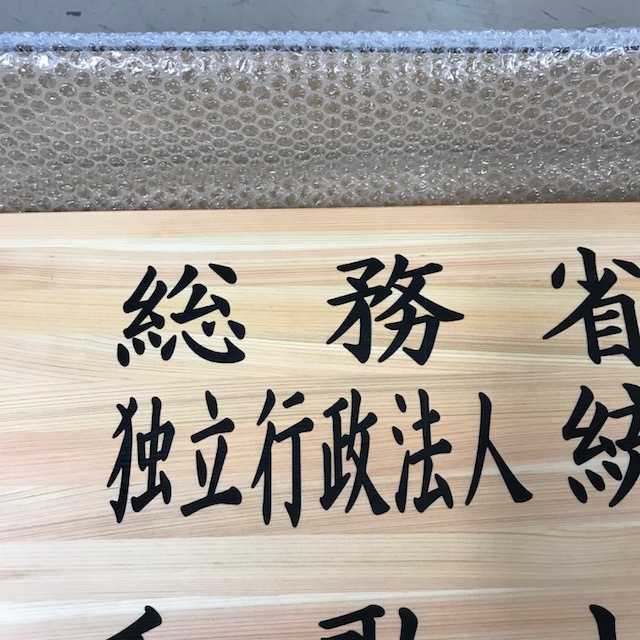 総務省
独立行政法人統